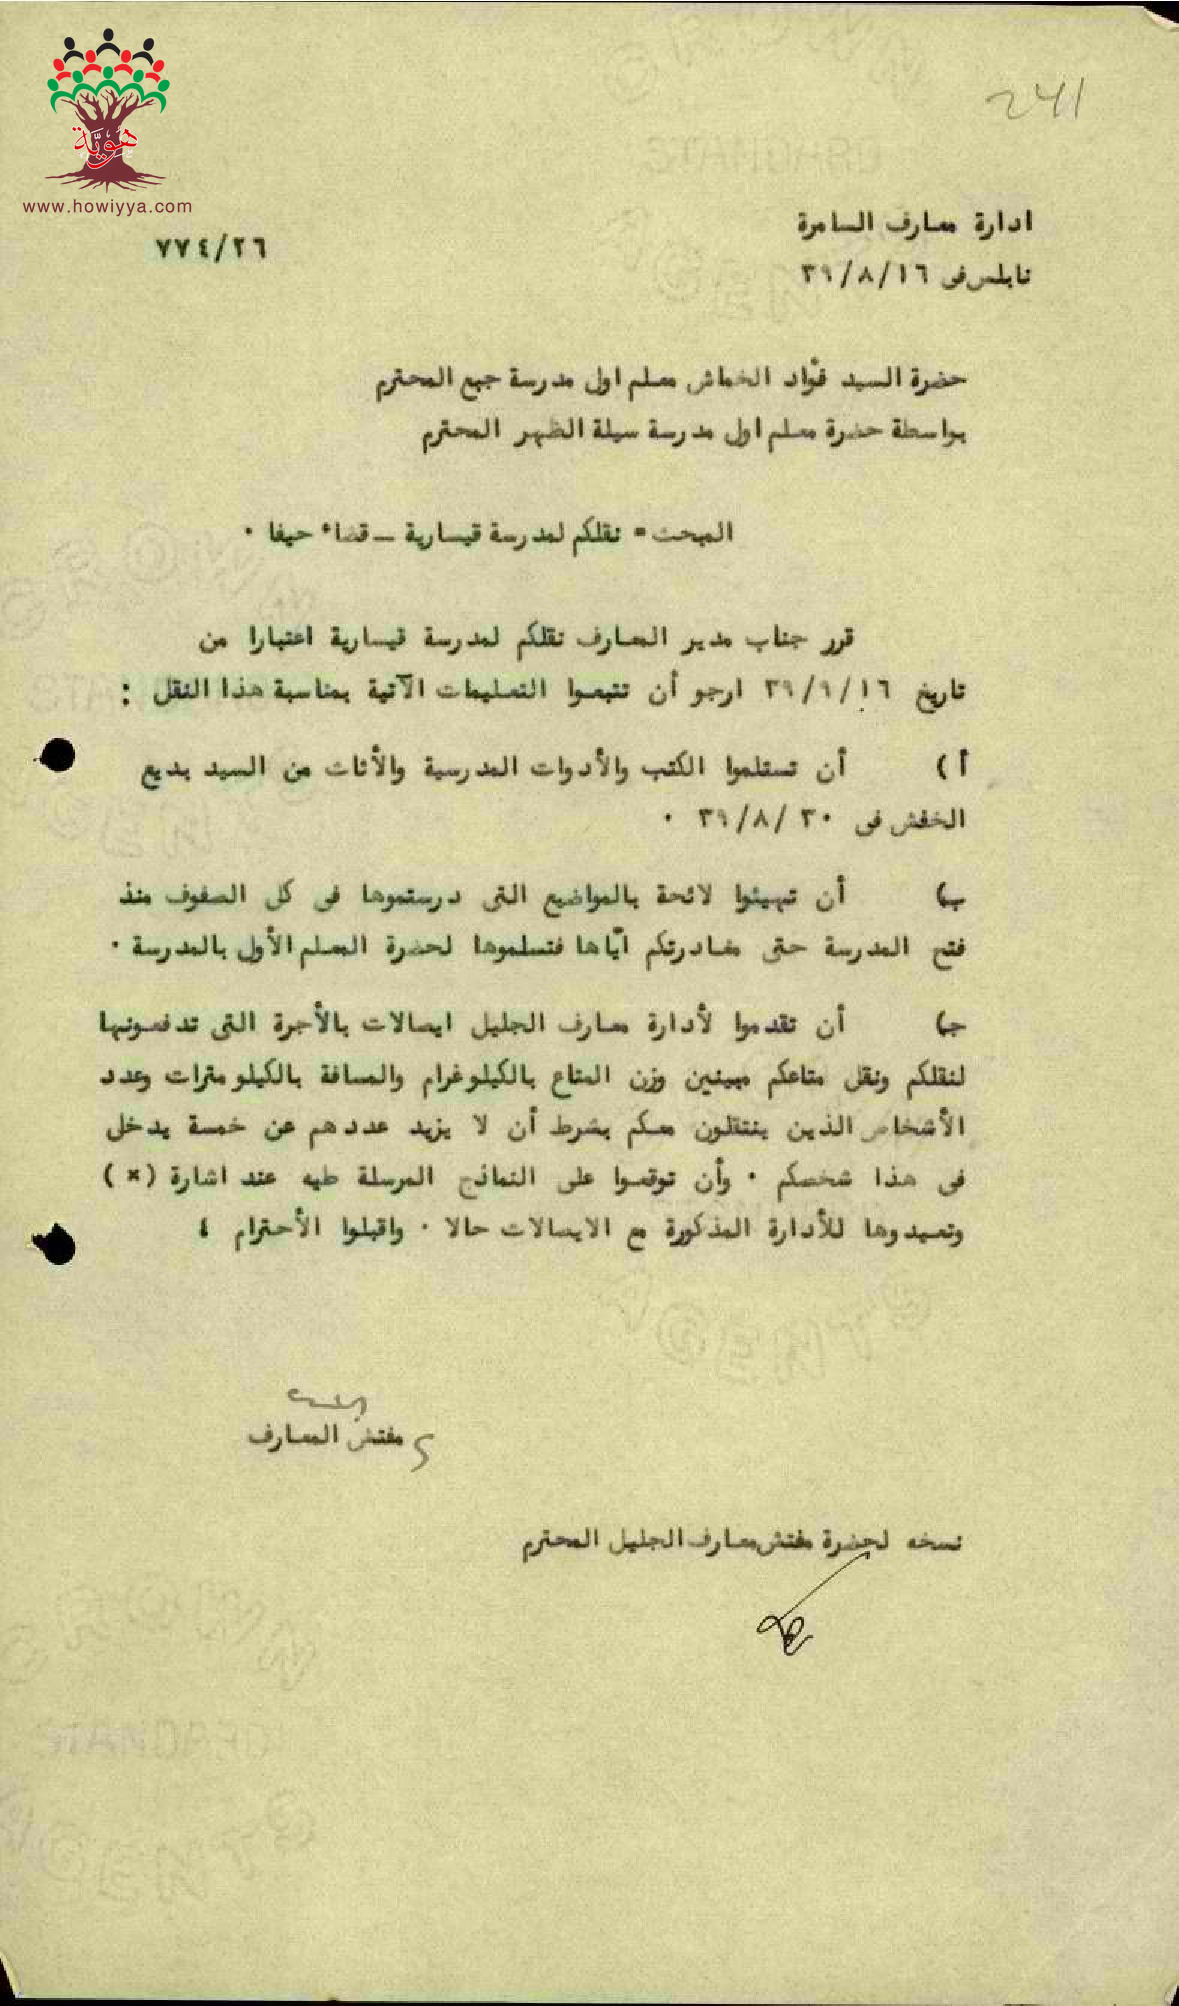 241
هوية
www.howiyya.com
ادارة معارف السامرة
٧٧٤/٢٦
نابلس فى ٣٩/٨/١٦
حضرة السيد فؤاد الخماش معلم اول مدرسة جبع المحترم
بواسطة حضرة معلم اول مدرسة سيلة الظهر المحترم
المبحث = نقلكم لمدرسة قيسارية – قضاء حيفا ٠
قرر جناب مدير المعارف نقلكم لمدرسة قيسارية اعتبارا من
تاريخ ٣٩/٩/١٦ ارجو أن تتبعوا التعليمات الآتية بمناسبة هذا النقل :
أ ) أن تستلموا الكتب والأدوات المدرسية والأثاث من السيد بديع
الخفش فى ٣٩/٨/٣٠ ٠
ب) أن تهيئوا لائحة بالمواضيع التى درستموها فى كل الصفوف منذ
فتح المدرسة حتى مغادرتكم ايّاها فتسلموها لحضرة المعلم الأول بالمدرسة ٠
جـ) أن تقدموا لأدارة معارف الجليل ايصالات بالأجرة التى تدفعونها
لنقلكم ونقل متاعكم مبينين وزن المتاع بالكيلوغرام والمسافة بالكيلو مترات وعدد
الأشخاص الذين ينتقلون معكم بشرط أن لا يزيد عددهم عن خمسة يدخل
فى هذا شخصكم ٠ وأن توقعوا على النماذج المرسلة طيه عند اشارة (×)
وتعيدوها للأدارة المذكورة مع الايصالات حالا ٠ واقبلوا الأحترام ٤
مفتش المعارف
نسخه لحضرة مفتش معارف الجليل المحترم